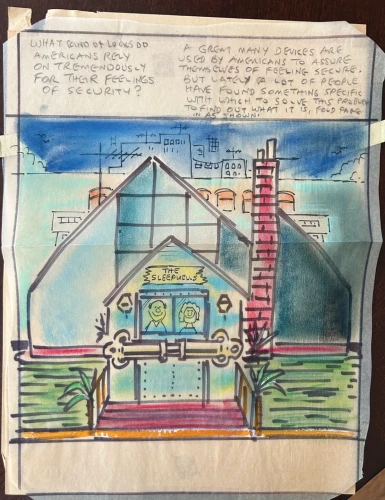 WHAT KIND OF LOCKS DO
AMERICANS RELY
ON TREMENDOUSLY
FOR THEIR FEELINGS
OF SECURITY?
A GREAT MANY DEVICES ARE
USED BY AMERICANS TO ASSURE
THEMSELVES OF FEELING SECURE.
BUT LATELY A LOT OF PEOPLE
HAVE FOUND SOMETHING SPECIFIC
WITH WHICH TO SOLVE THIS PROBLEM
TO FIND OUT WHAT IT IS, FOLD PAGE
IN AS SHOWN.
THE